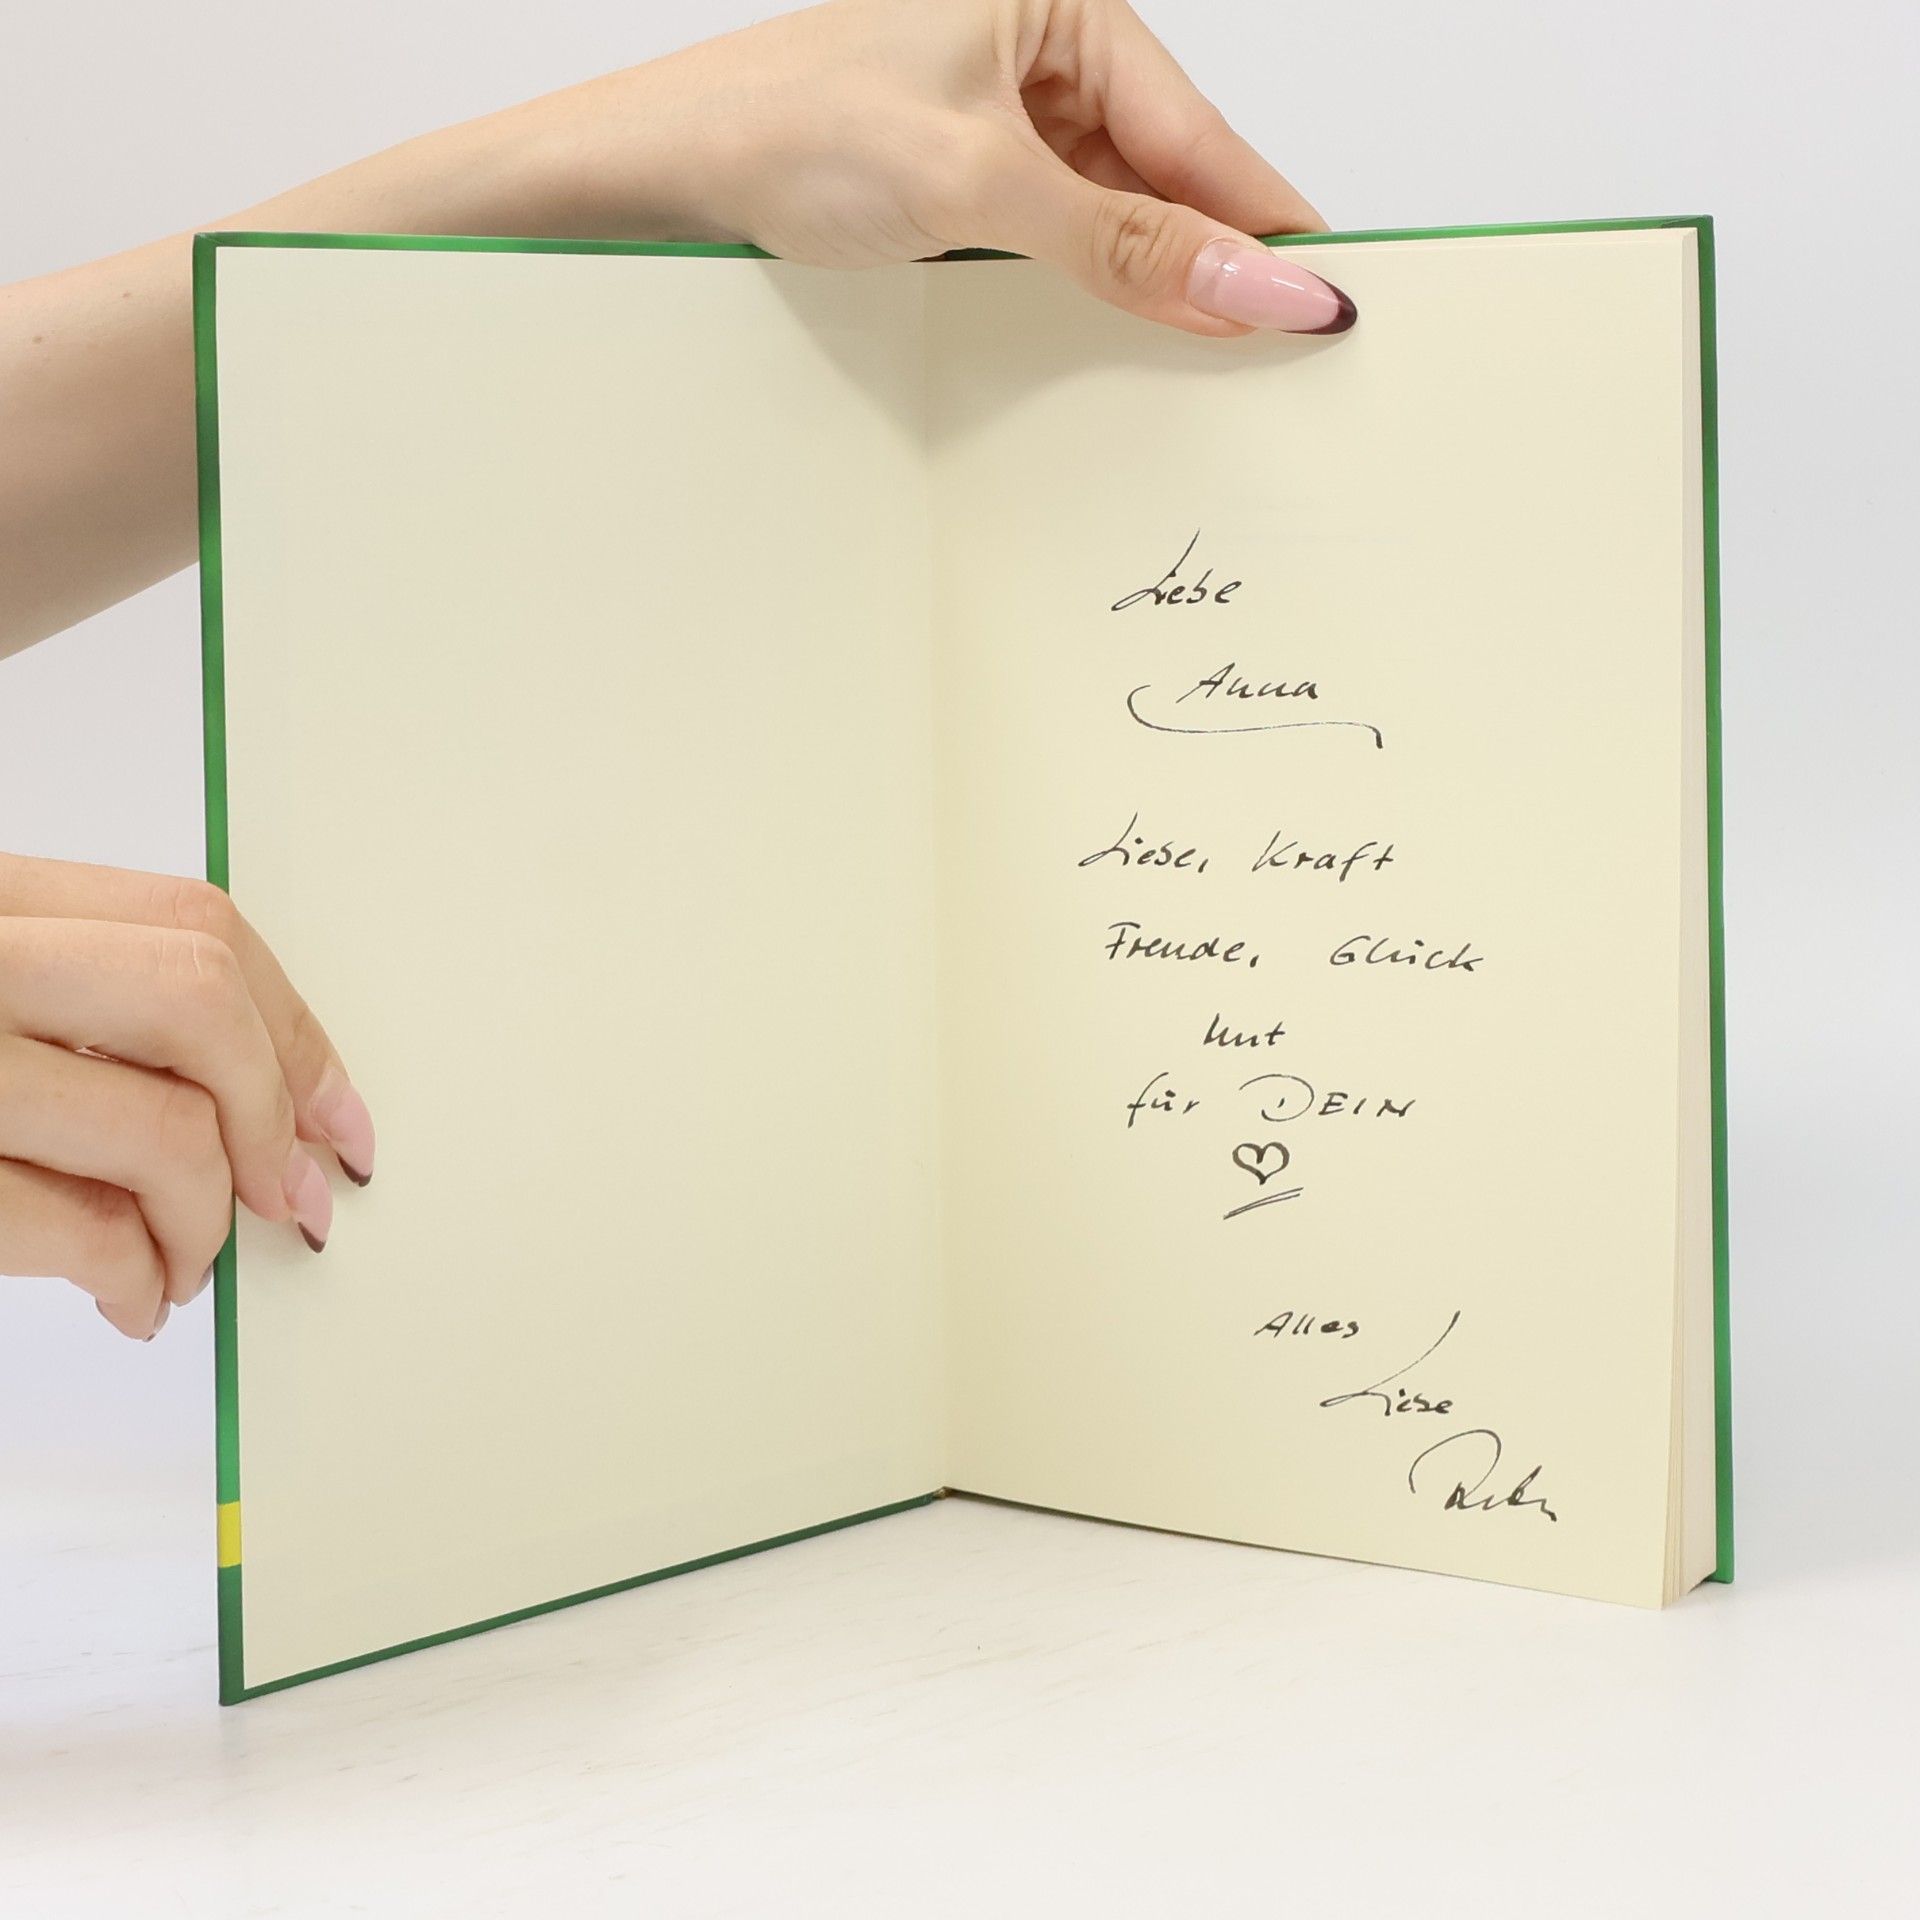 Liebe
Anna
Liebe, Kraft
Freude, Glück
Mut
für DEIN
Alles
Liebe